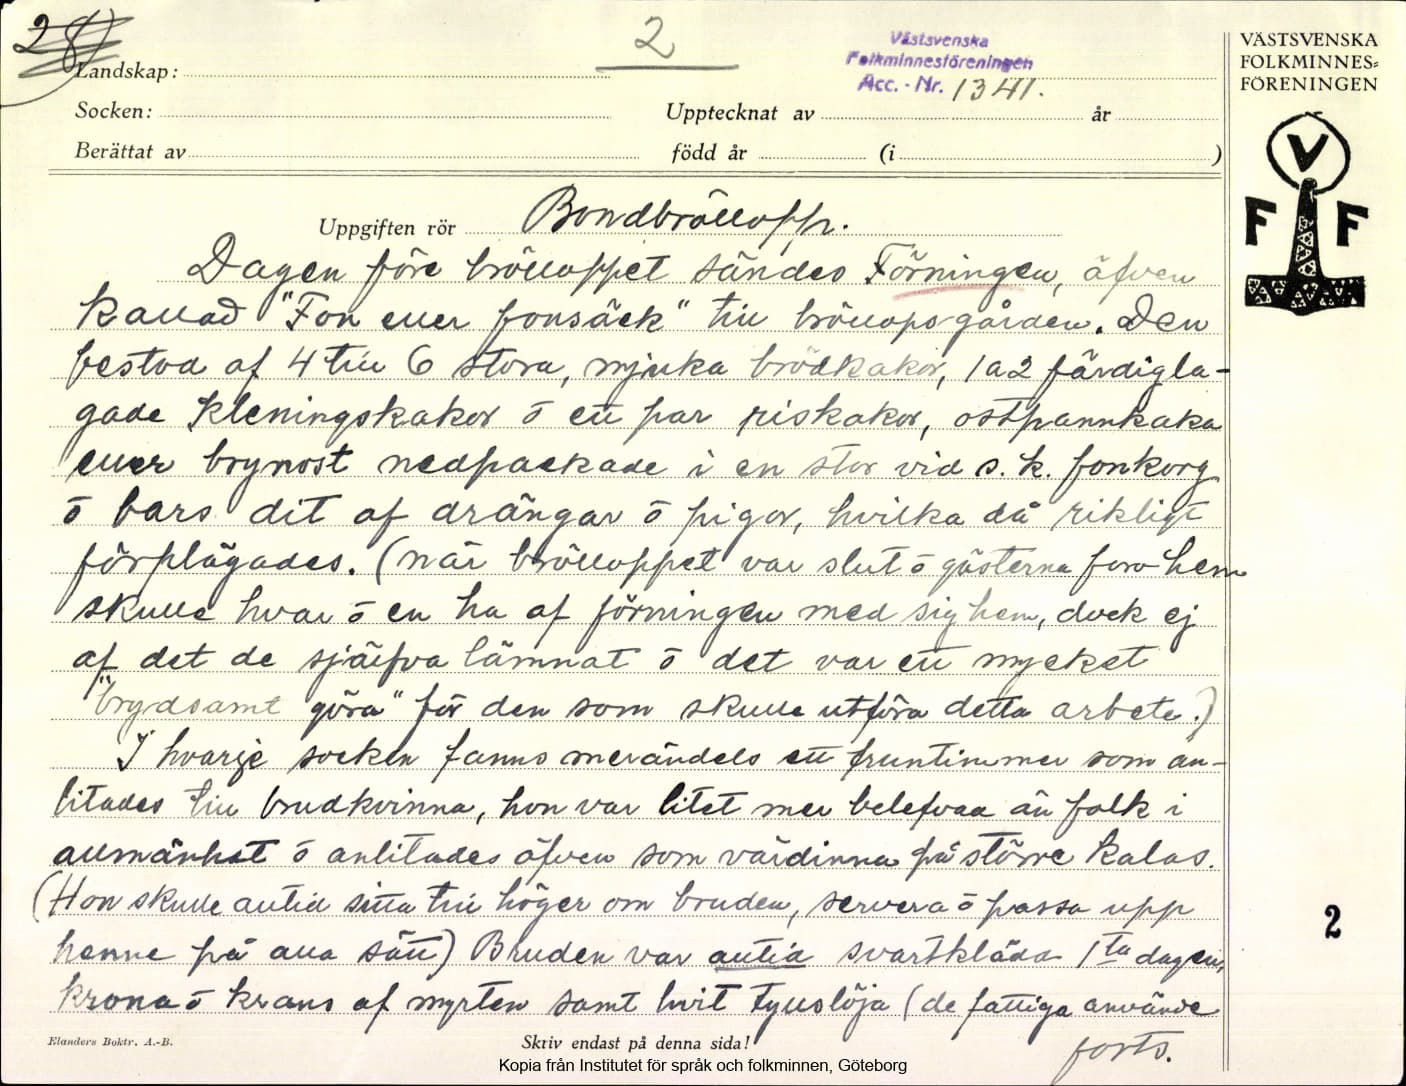 28)
2
Västsvenska
Folkminnesföreningen
Acc. - Nr. 1341.
VÄSTSVENSKA
FOLKMINNES=
FÖRENINGEN
V
F F
Landskap:
Socken:
Upptecknat av år
Berättat av född år (i )
Uppgiften rör Bondbröllopp.
Dagen före brölloppet sändes Förningen, äfven
kallad "Fon eller fonsäck" till bröllopsgården. Den
bestod af 4 till 6 stora, mjuka brödkakor, 1 a 2 färdigla-
gade Kleningskakor ō ett par riskakor, ostpannkaka
eller brynost nedpackade i en stor vid s.k. fonkorg
ō bars dit af drängar ō pigor, hvilka då rikligt
förplägades. (När brölloppet var slut ō gästerna foro hem
skulle hvar ō en ha af förningen med sig hem, dock ej
af det de själfva lämnat ō det var ett mycket
"brydsamt göra" för den som skulle utföra detta arbete.)
I hvarje socken fanns merändels ett fruntimmer som an-
litades till brudkvinna, hon var litet mer belefvad än folk i
allmänhet ō anlitades äfven som värdinna på större kalas.
(Hon skulle alltid sitta till höger om bruden, servera ō passa upp
henne på alla sätt) Bruden var alltid svartklädd 1sta dagen,
krona ō krans af myrten samt hvit tyllslöja (de fattiga använde
forts.
2
Elanders Boktr. A.-B.
Skriv endast på denna sida!
Kopia från Institutet för språk och folkminnen, Göteborg